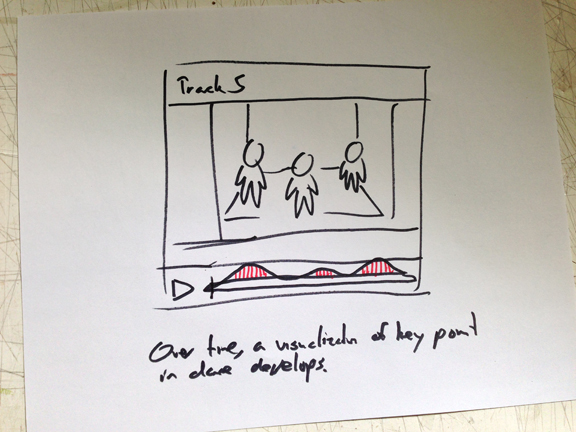 Track 5
Over time, a visualization of key point
in dance develops.